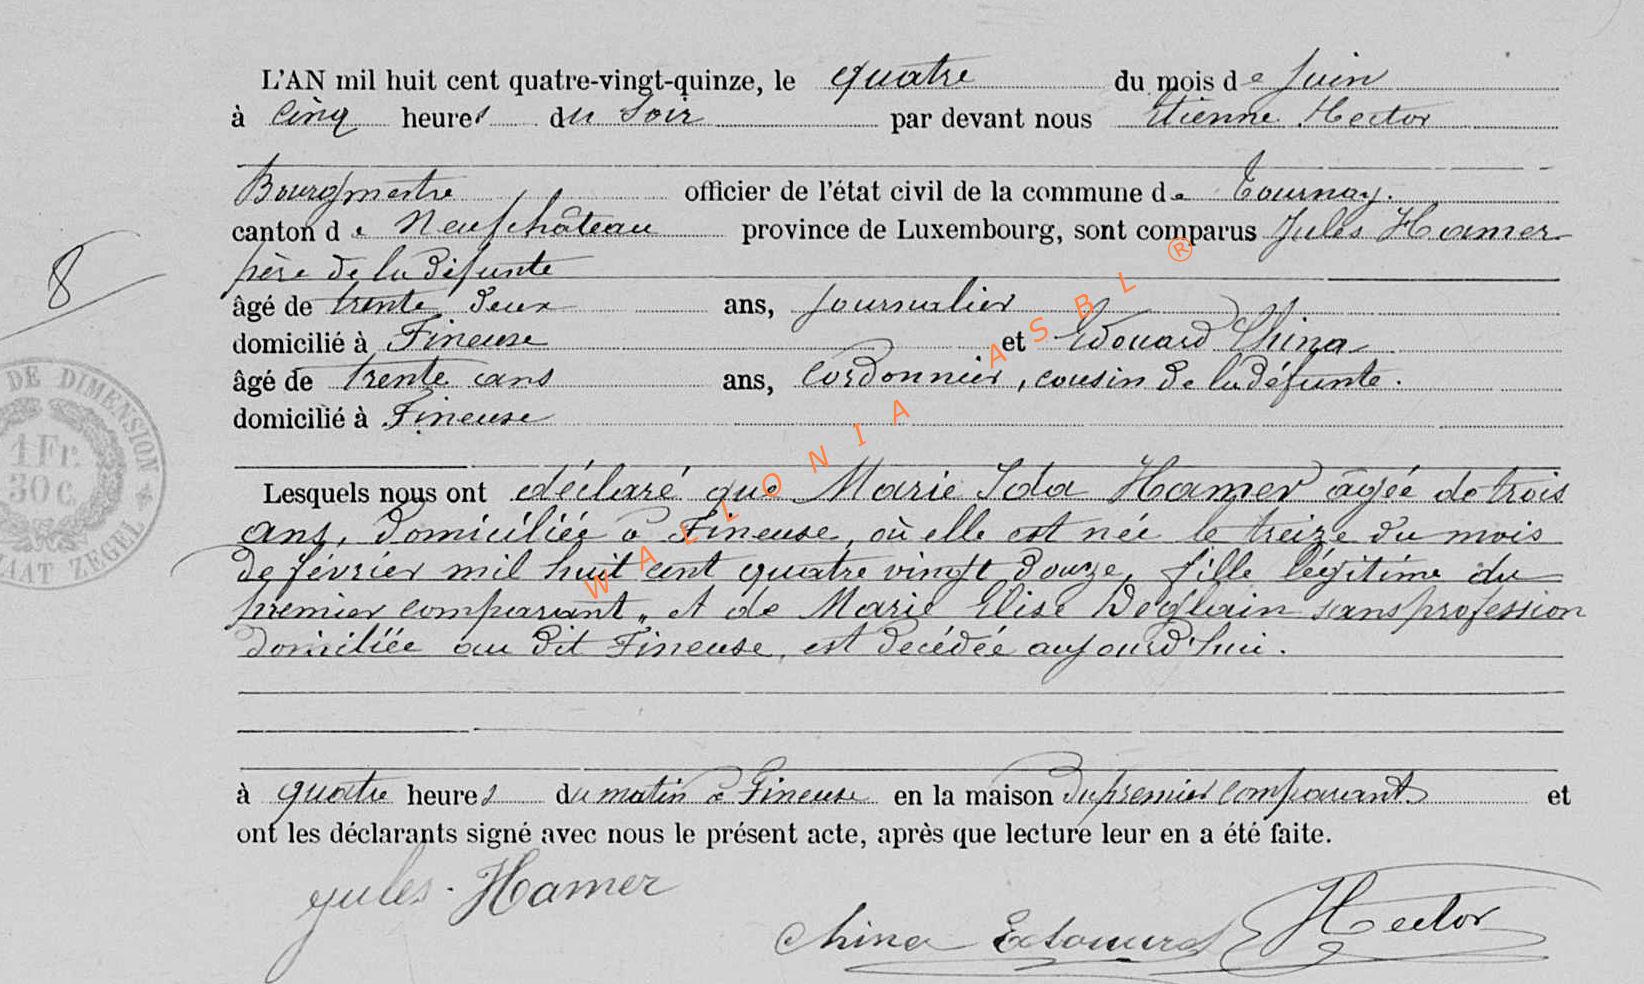 L'AN mil huit cent quatre-vingt-quinze, le quatre du mois de Juin
à cinq heures du soir par devant nous Etienne Hector
Bourgmestre officier de l'état civil de la commune de Tournay.
canton de Neufchâteau province de Luxembourg, sont comparus Jules Hamer
père de la défunte
âgé de trente deux ans, journalier
domicilié à Fineuse et Edouard China
âgé de trente ans ans, Cordonnier, cousin de la défunte.
domicilié à Fineuse
8
DE DIMENSION
1 Fr.
30 c.
ZEGEL
Lesquels nous ont déclaré que Marie Ida Hamer âgée de trois
ans, domiciliée à Fineuse, où elle est née le treize du mois
de février mil huit cent quatre vingt douze, fille légitime du
premier comparant, et de Marie Elise Deglain sans profession
domiciliée au dit Fineuse, est décédée aujourd'hui.
à quatre heures du matin à Fineuse en la maison du premier comparant et
ont les déclarants signé avec nous le présent acte, après que lecture leur en a été faite.
Jules Hamer
China Edouard Hector
WALLONIA ASBL ®